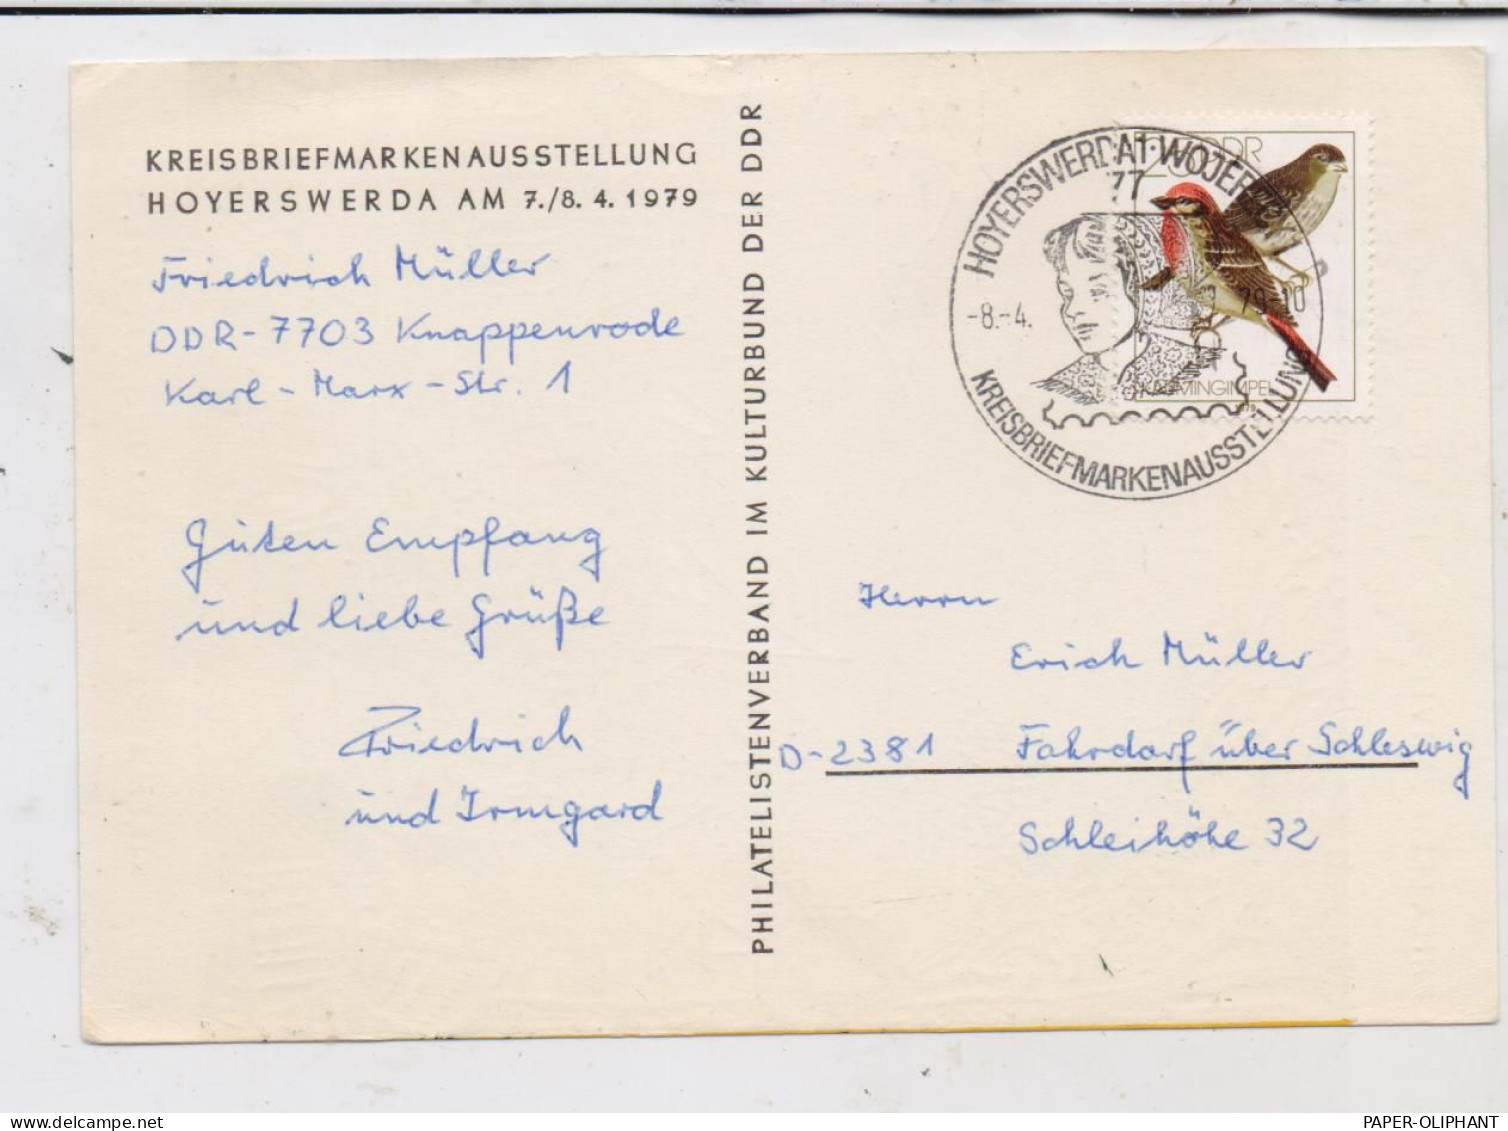 KREISBRIEFMARKENAUSSTELLUNG
HOYERSWERDA AM 7./8. 4. 1979
Friedrich Müller
DDR-7703 Knappenrode
Karl-Marx-Str. 1
Guten Empfang
und liebe Grüße
Friedrich
und Irmgard
PHILATELISTENVERBAND IM KULTURBUND DER DDR
20 DDR
KARMINGIMPEL
HOYERSWERDA 1 · WOJERECY
77
-8.-4. 79-10
KREISBRIEFMARKENAUSSTELLUNG
Herrn
Erich Müller
D-2381 Fahrdorf über Schleswig
Schleihöhe 32
PAPER-OLIPHANT